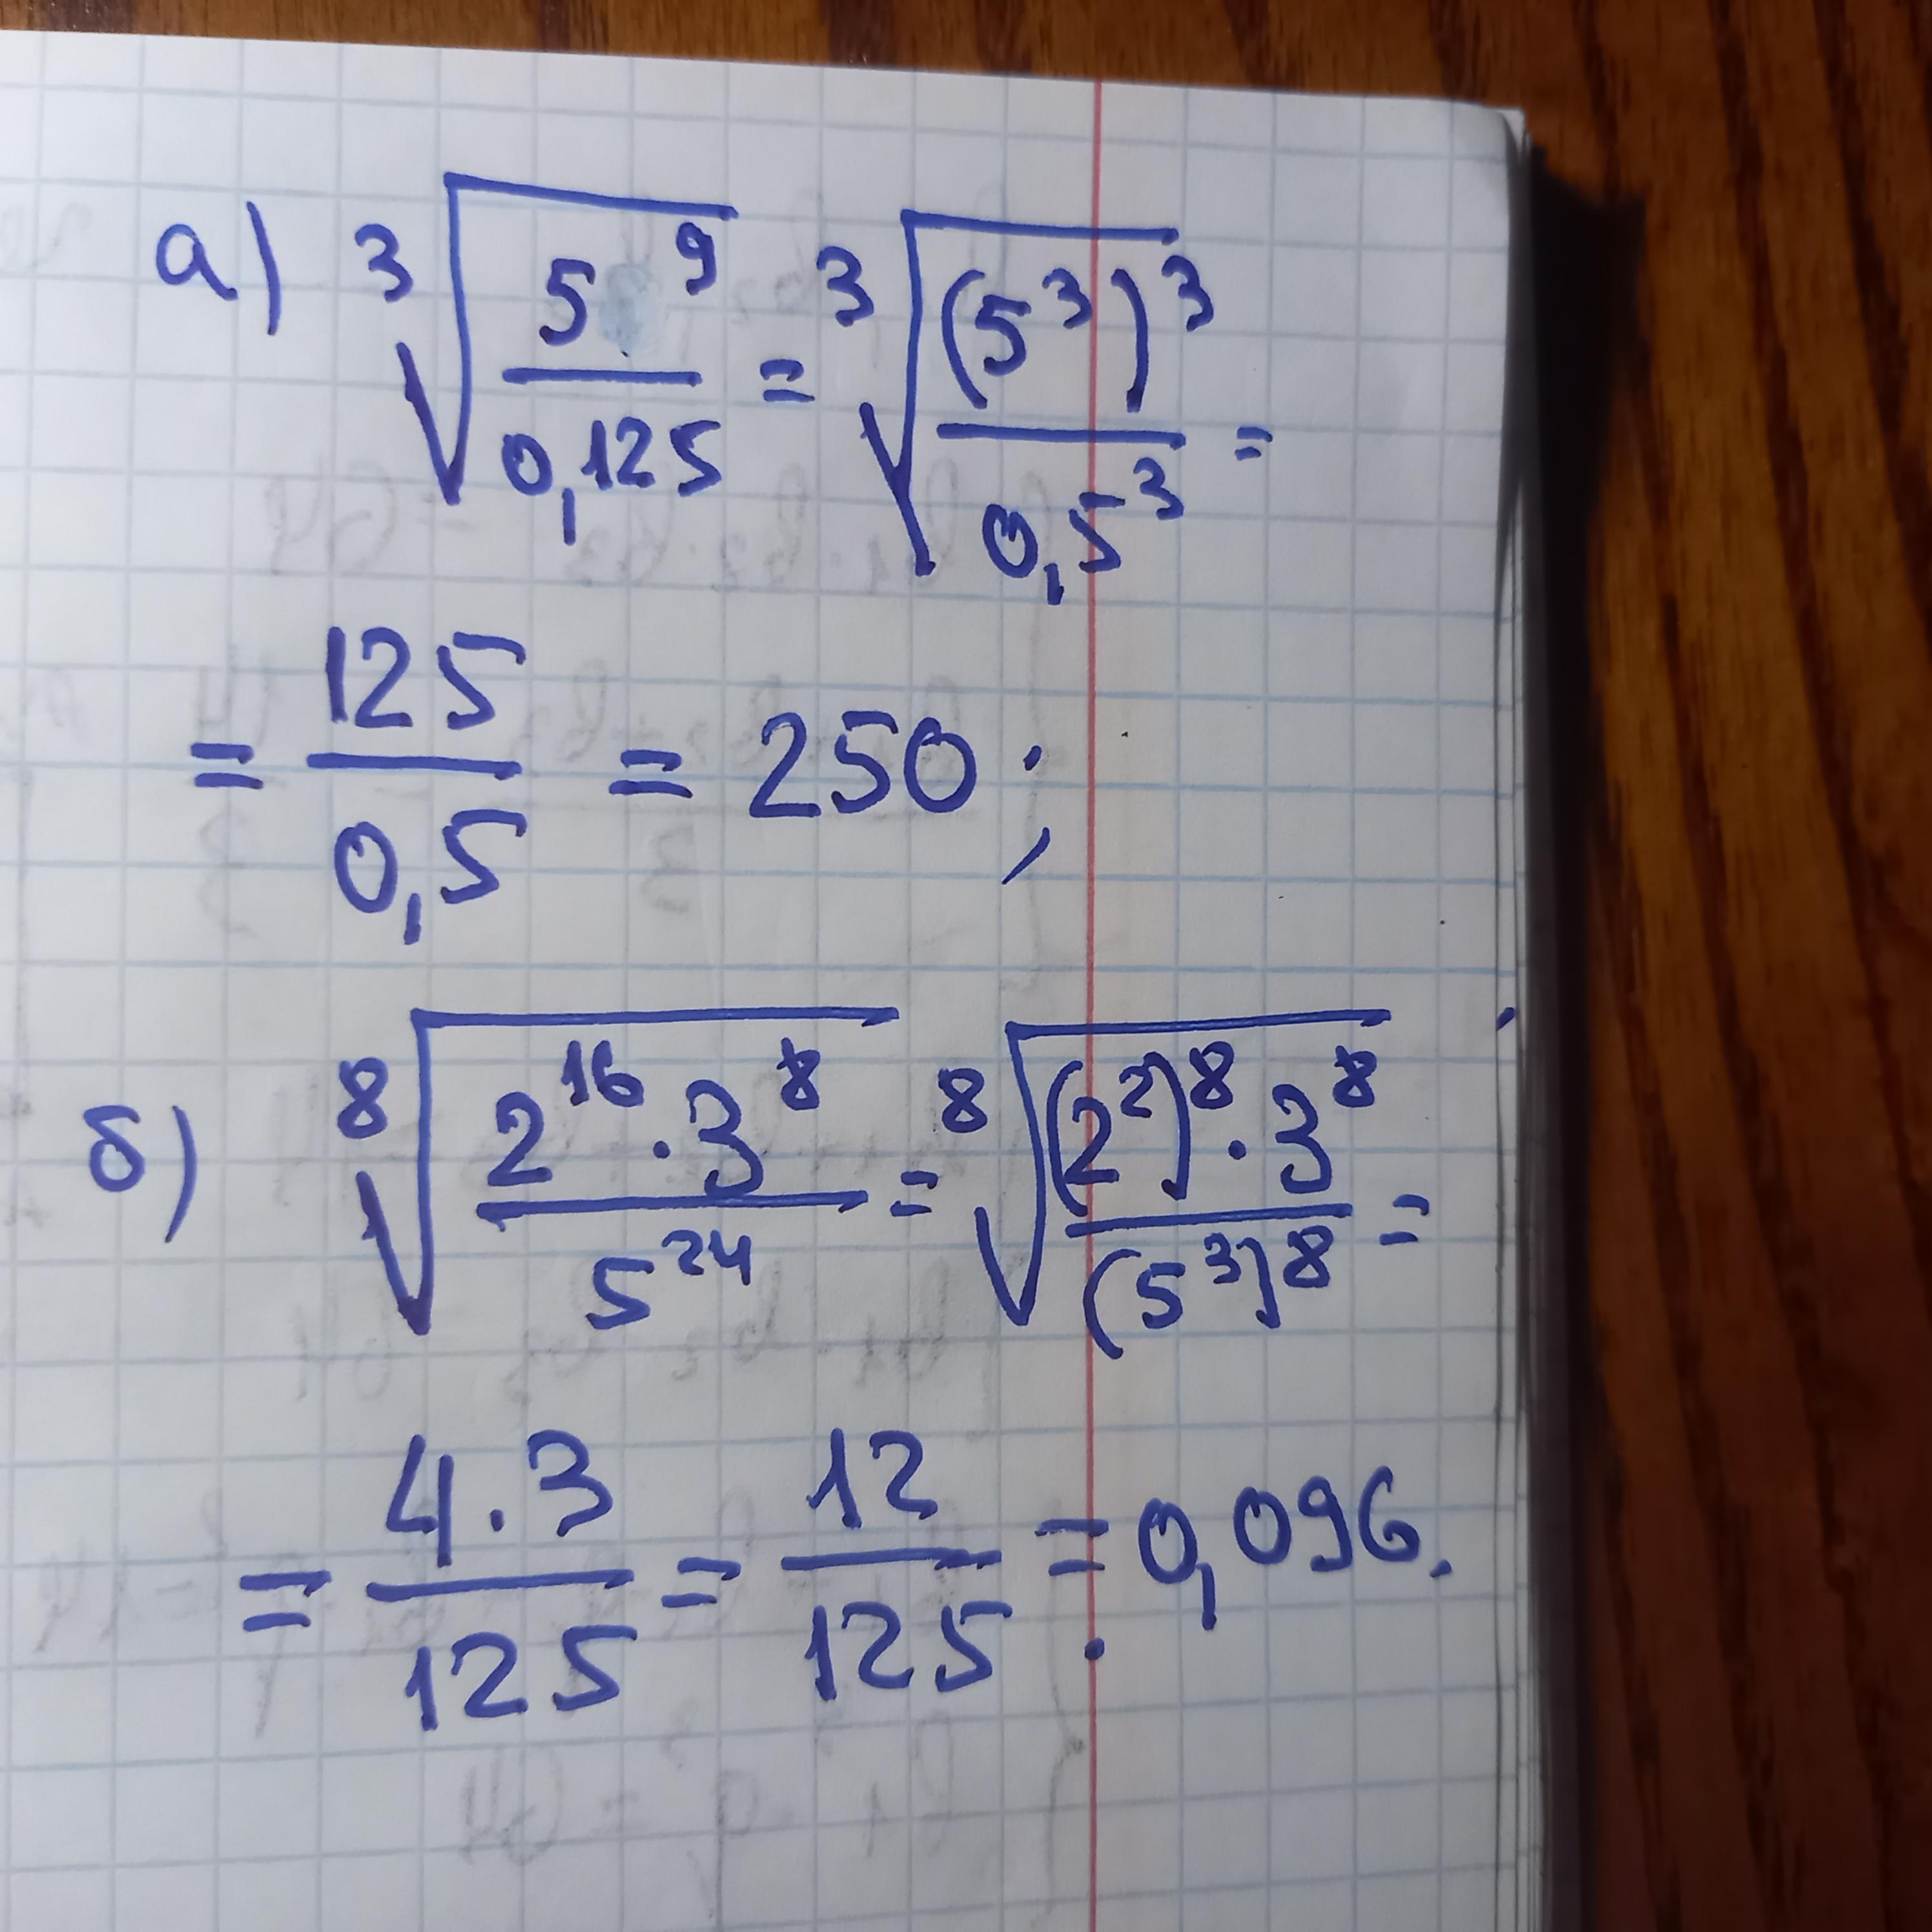 а) ∛(5⁹/0,125) = ∛((5³)³/0,5³) =
= 125/0,5 = 250;
б) ⁸√(2¹⁶·3⁸/5²⁴) = ⁸√((2²)⁸·3⁸/(5³)⁸) =
= 4·3/125 = 12/125 = 0,096.